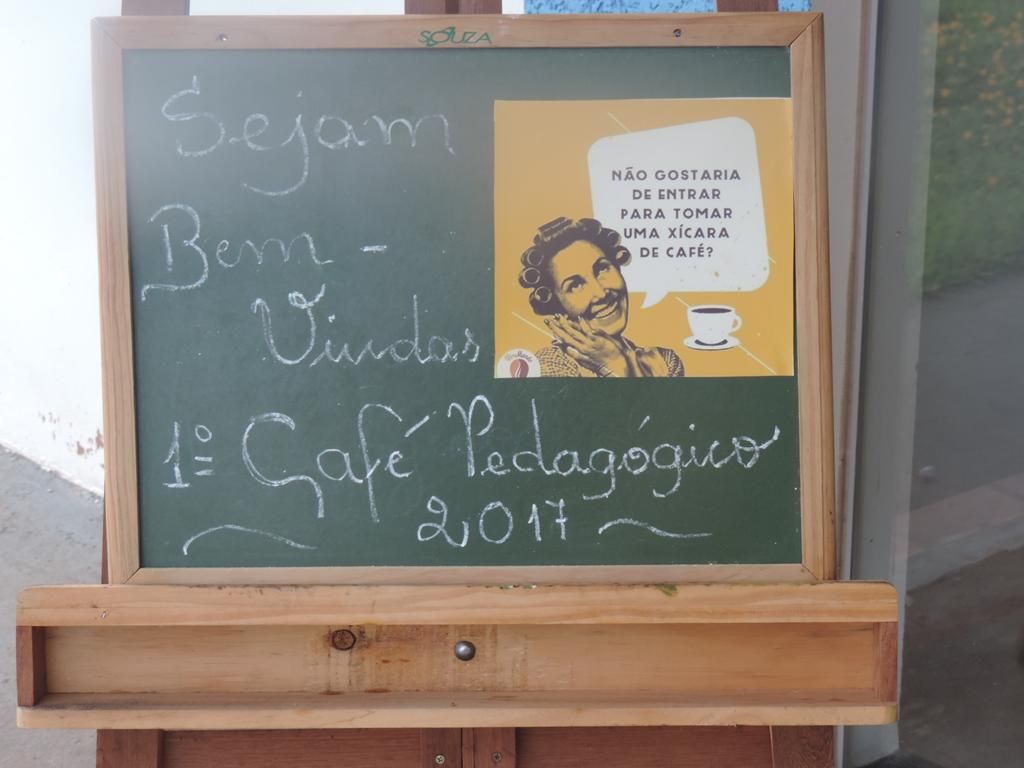 SOUZA
Sejam
Bem -
Vindas
NÃO GOSTARIA
DE ENTRAR
PARA TOMAR
UMA XÍCARA
DE CAFÉ?
1º Café Pedagógico
2017